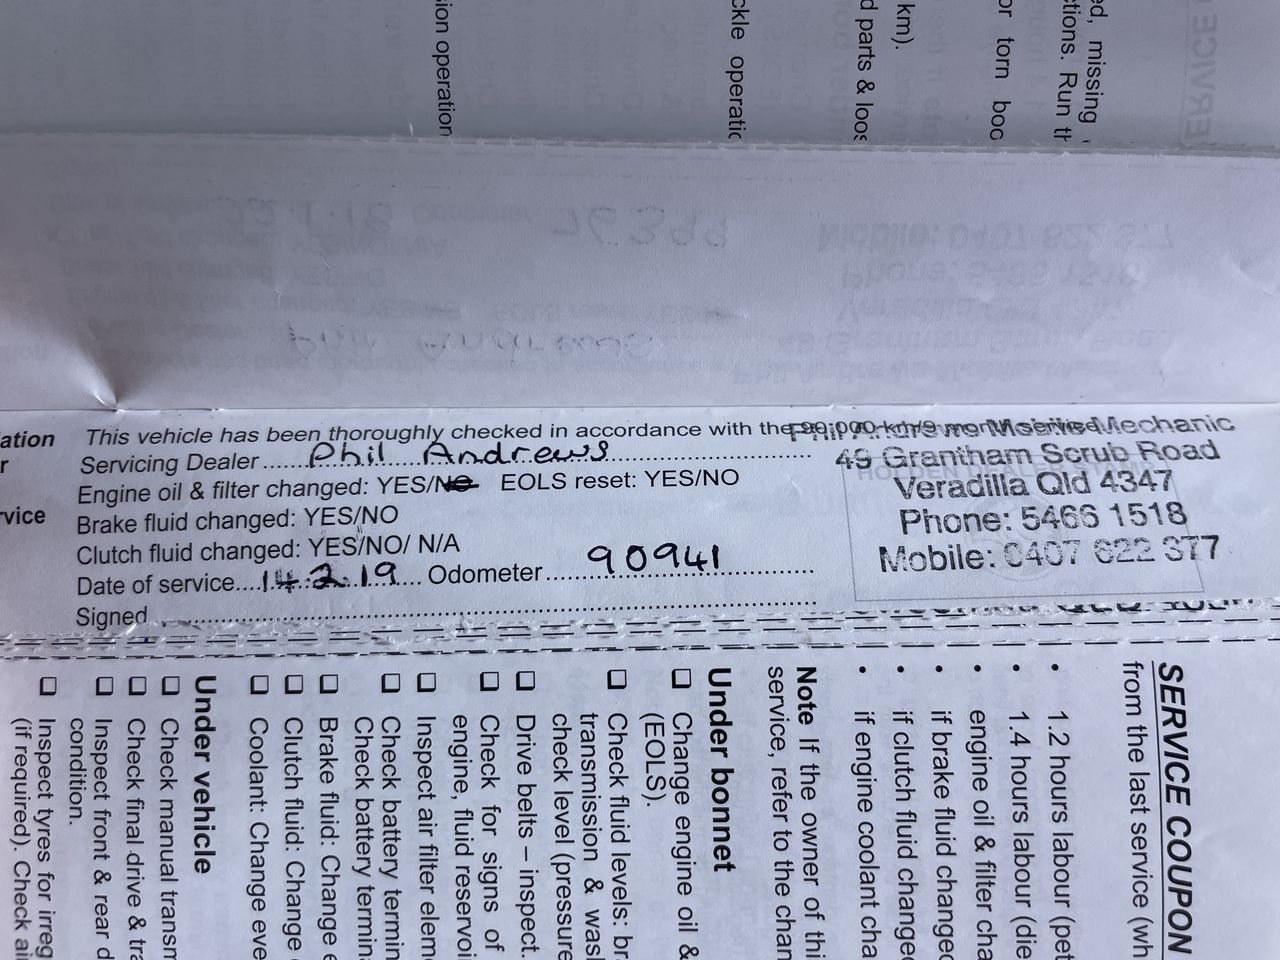 ion operation
ckle operatio
d parts & loos
km).
or torn boo
ctions. Run th
ed, missing
ation
r
rvice
This vehicle has been thoroughly checked in accordance with the 90,000 km/9 month service.
Servicing Dealer..... Phil Andrews
Engine oil & filter changed: YES/NO EOLS reset: YES/NO
Brake fluid changed: YES/NO
Clutch fluid changed: YES/NO/ N/A
Date of service....14.2.19.... Odometer.... 90941
Signed
Phil Andrews Mobile Mechanic
49 Grantham Scrub Road
Veradilla Qld 4347
Phone: 5466 1518
Mobile: 0407 622 377
SERVICE COUPON
from the last service (wh
• 1.2 hours labour (pet
• 1.4 hours labour (die
• engine oil & filter cha
• if brake fluid changed
• if clutch fluid changed
• if engine coolant cha
Note If the owner of thi
service, refer to the chan
Under bonnet
Change engine oil &
(EOLS).
Check fluid levels: br
transmission & wasl
check level (pressure
Drive belts – inspect.
Check for signs of
engine, fluid reservoi
Inspect air filter elem
Check battery termin
Check battery termina
Brake fluid: Change e
Clutch fluid: Change
Coolant: Change eve
Under vehicle
Check manual transm
Check final drive & tra
Inspect front & rear d
condition.
Inspect tyres for irreg
(if required). Check ai